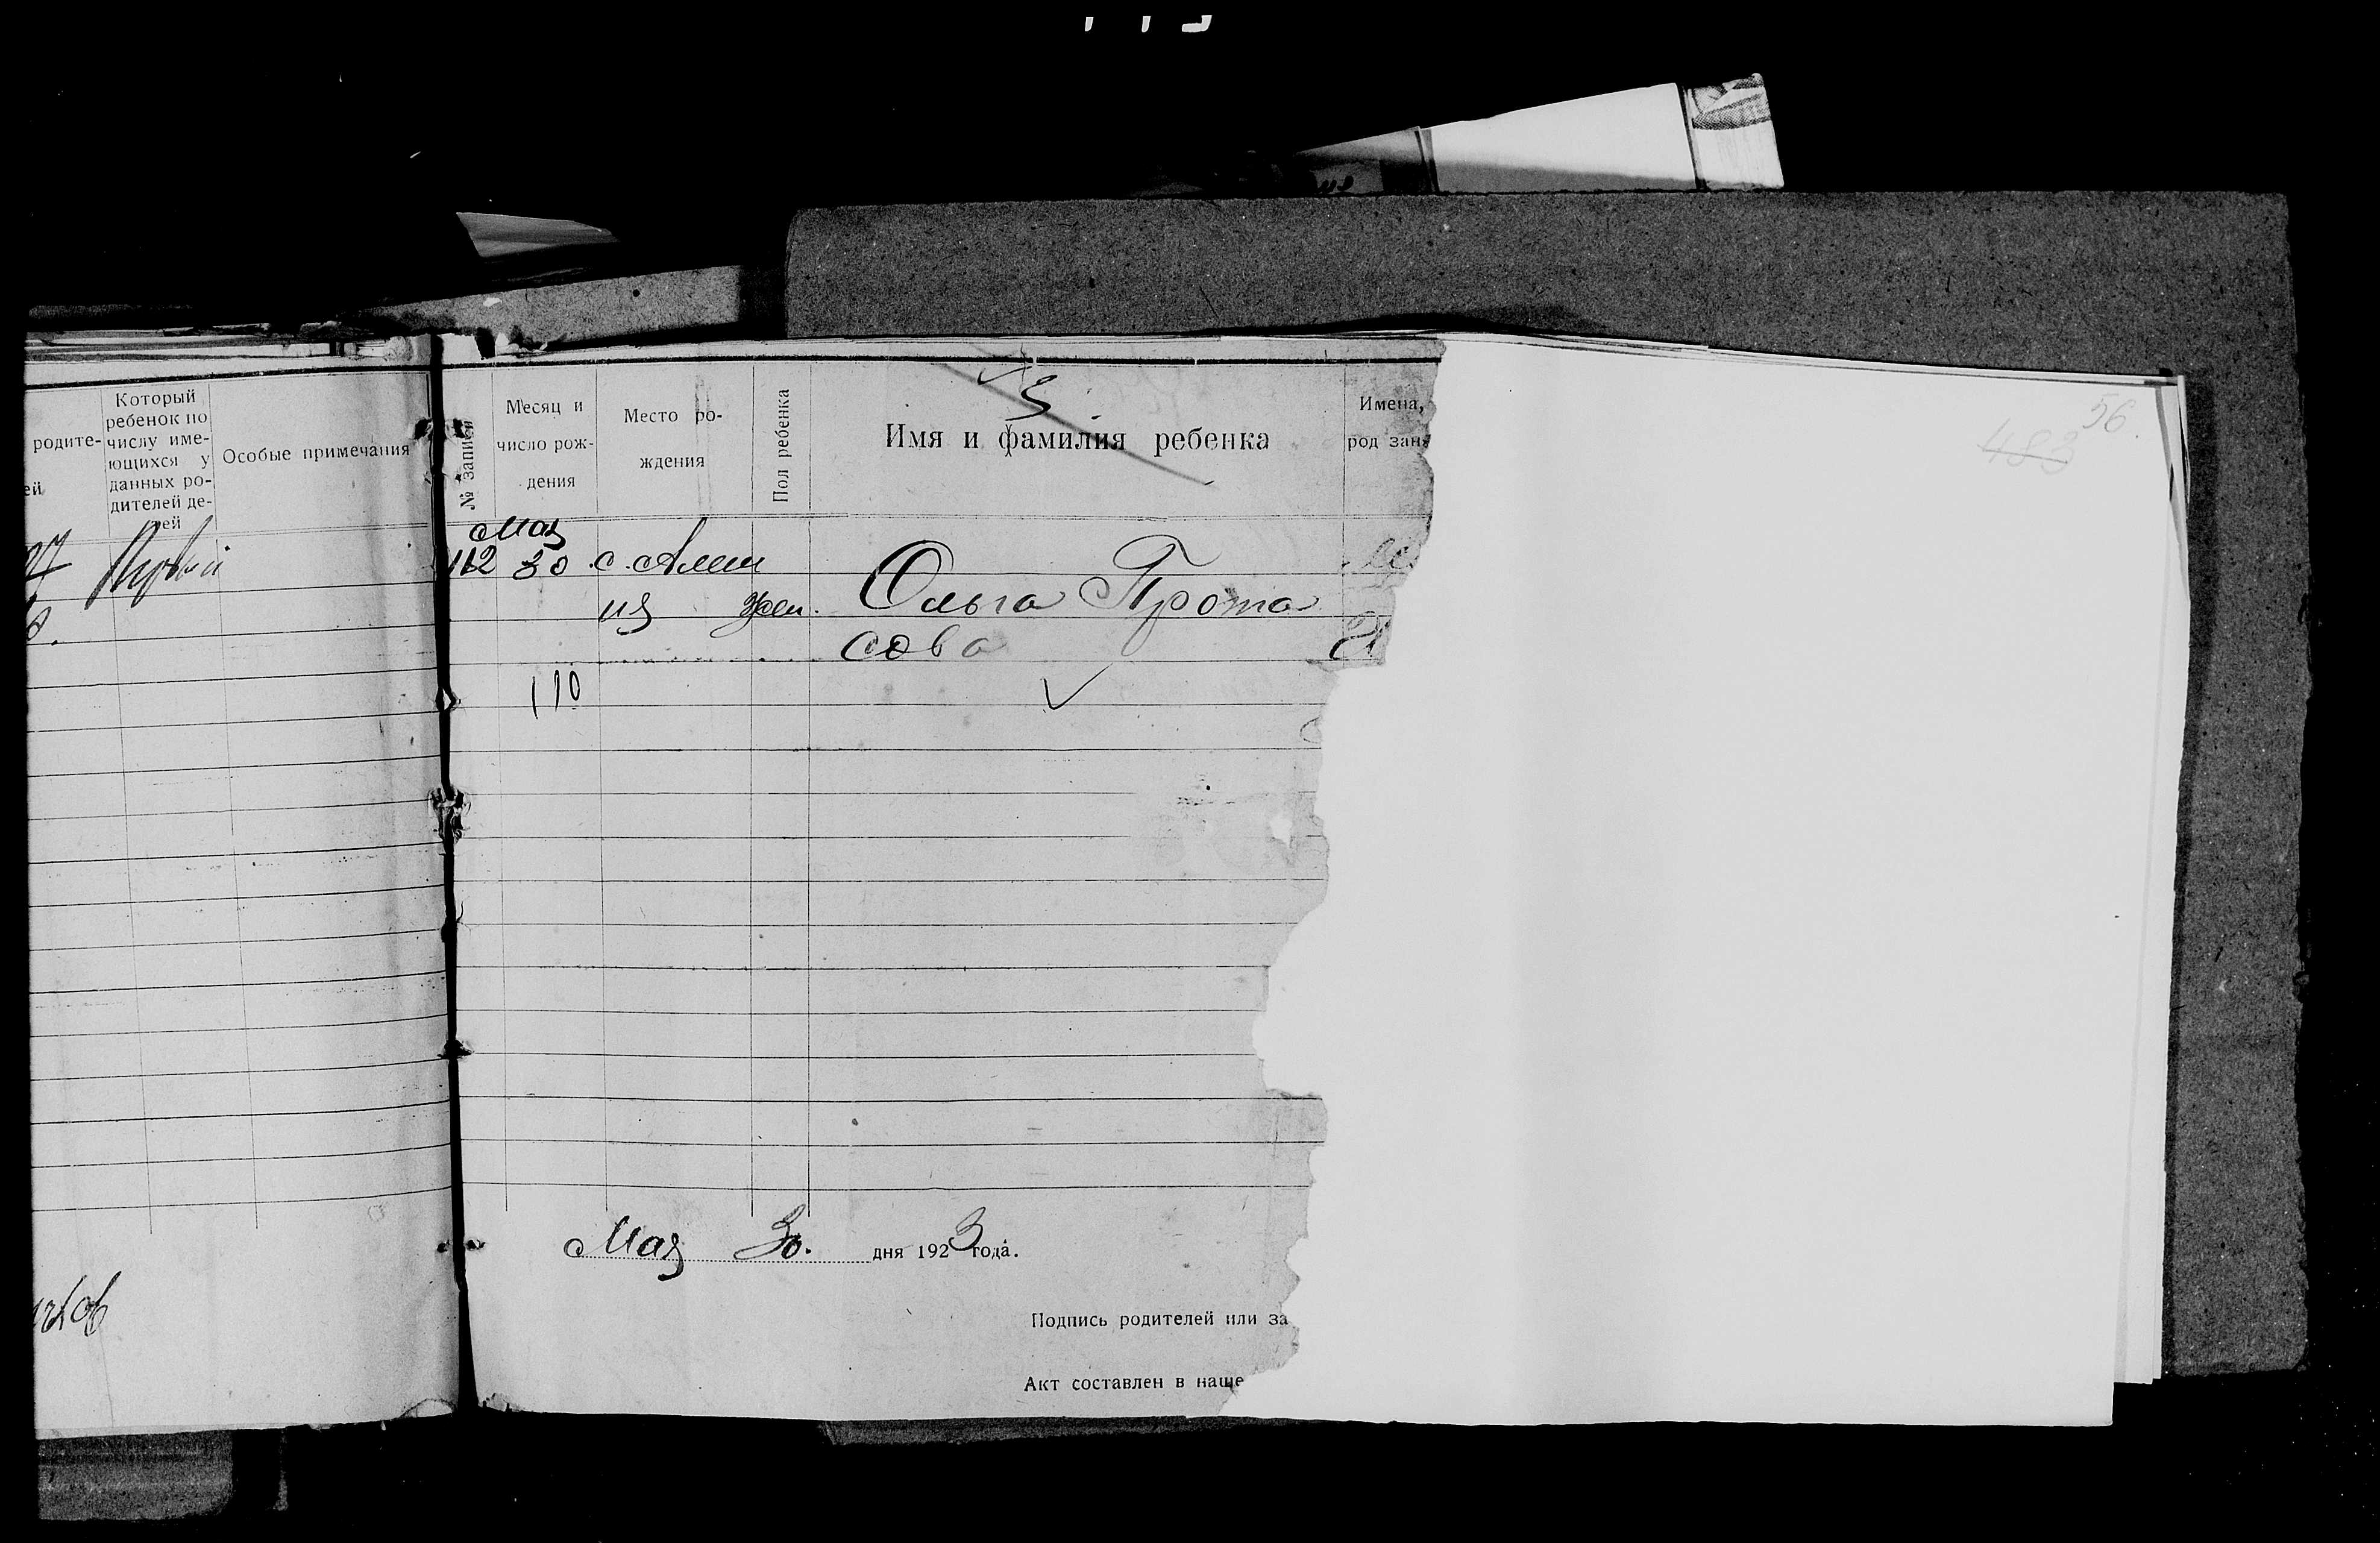 родите-
ей
Который
ребенок по
числу име-
ющихся у
данных ро-
дителей де-
тей
Особые примечания
27
Первый
№ записи
Месяц и
число рож-
дения
Место ро-
ждения
Пол ребенка
3
Имя и фамилия ребенка
Имена,
род зан
56.
483
Мая
112 30 с.
жен. Ольга Прота
сова
110
Мая 30. дня 1923 года.
Подпись родителей или за
Акт составлен в наше